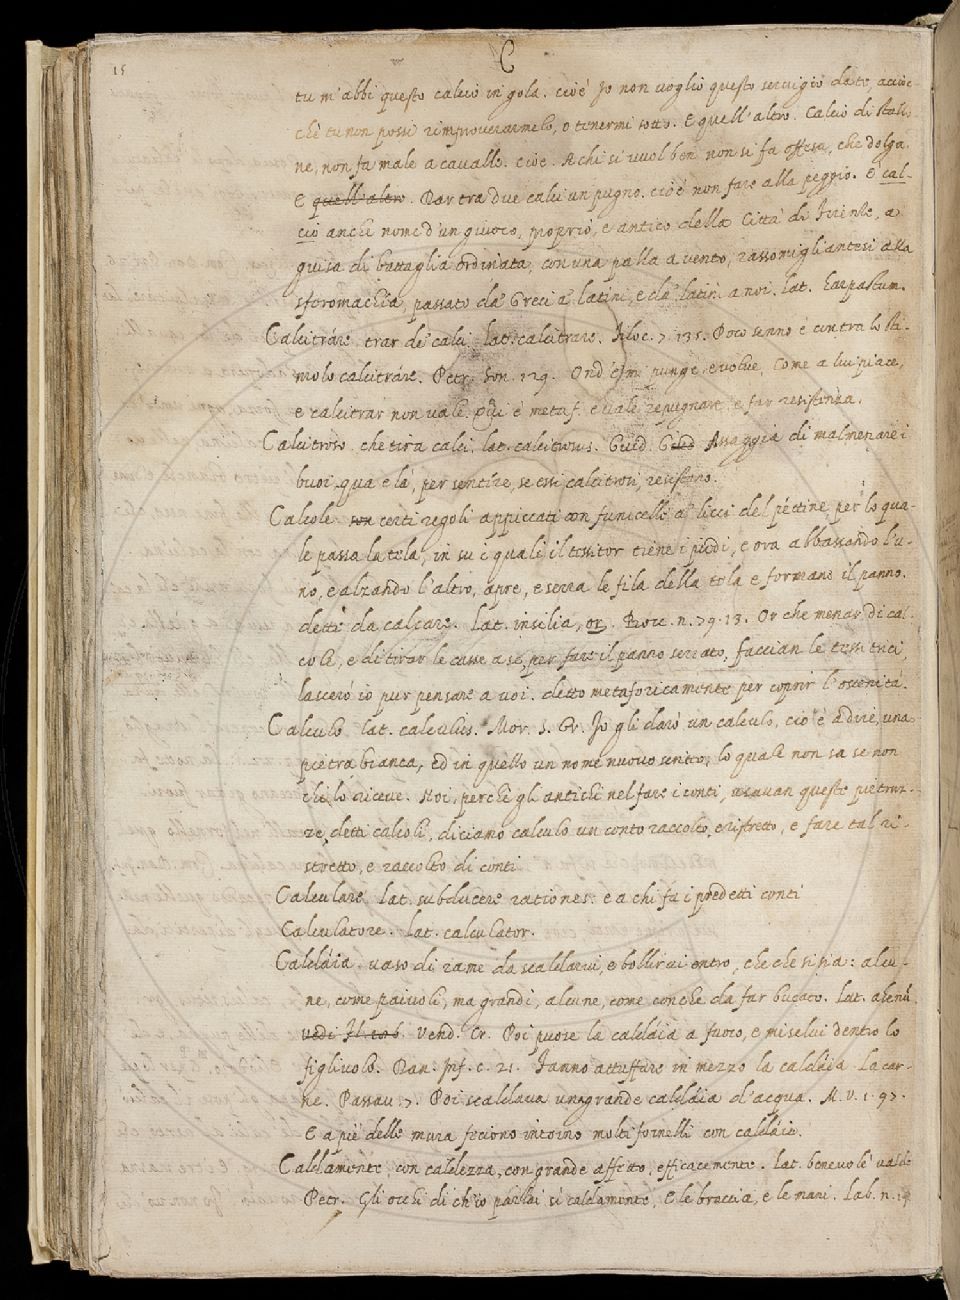 15
C
tu m'abbi questo calcio in gola. cioè Jo non voglio questo servigio da te, accioc-
chè tu non possi rimproverarmelo, o tenermi sotto. E quell'altro. Calcio di stallo
ne, non fa male a cavallo. cioè. A chi si vuol ben non si fa offesa, che dolga.
E quell'altro. Dar tra due calci un pugno. cioè non fare alla peggio. È cal-
cio anche nome d'un giuoco, proprio, e antico della Città di Firenze, a
guisa di battaglia ordinata, con una palla a vento, rassomigliantesi alla
sferomachia, passato da' Greci a' latini, e da' latini a noi. lat. harpastum.
Calcitráre. trar de' calci. lat. calcitrare. Filoc. 7. 135. Poco senno è contra lo sti-
molo calcitráre. Petr. Son. 129. Ond'e' mi punge, e volve, Come a lui piace,
e calcitrar non vale. Qui è metaf. e vale repugnare, e far resistenza.
Calcitroso. che tira calci. lat. calcitrosus. Guid. Guid Assaggia di malmenare i
buoi qua e là, per sentíre, se essi calcitrosi, resistano.
Calcole. son certi regoli appiccati con funicelle a' licci del péttine, per lo qua-
le passa la tela, in su i quali il tessitor tiene i piedi, e ora abbassando l'u-
no, e alzando l'altro, apre, e serra le fila della tela e formane il panno.
dette da calcare. Lat. insilia, or. Bocc. n. 79. 13. Or che menar di cal-
cole, e di tirar le casse a sè, per fare il panno serrato, faccian le tessitrici,
lascerò io pur pensare a voi. detto metaforicamente per coprir l'oscenità.
Calculo. lat. calculus. Mor. S. Gr. Jo gli darò un calculo, cio è a dire, una
pietra bianca, Ed in quello un nome nuovo scritto, lo quale non sa se non
chi lo riceve. Noi, perchè gli antichi nel fare i conti, usavan queste pietruz-
ze, detti calcoli, diciamo calculo un conto raccolto, e ristretto, e fare tal ri
stretto, e raccolto di conti
Calculare. lat. subducere rationes: e a chi fa i predetti conti
Calculatore. lat. calculator.
Caldáia. vaso di rame da scaldarvi, e bollirvi entro, che che si sia: alcu-
ne, come paiuoli, ma grandi, alcune, come conche da far bucato. Lat. ahenũ
vedi
Vend. Cr. Poi puose la caldáia a fuoco, e miselvi dentro lo
figlivolo. Dan. Inf. c. 21. Fanno attuffare in mezzo la caldáia La car-
ne. Passav. 7. Poi scaldava una grande caldáia d'acqua. M. V. 1. 97.
E a piè delle mura feciono intorno molti fornelli con caldáie.
Caldamente, con caldezza, con grande affetto, efficacemente. Lat. benevolè valdè
Petr. Gli occhi di ch'io parlai sì caldamente, E le braccia, e le mani. Lab. n. 19